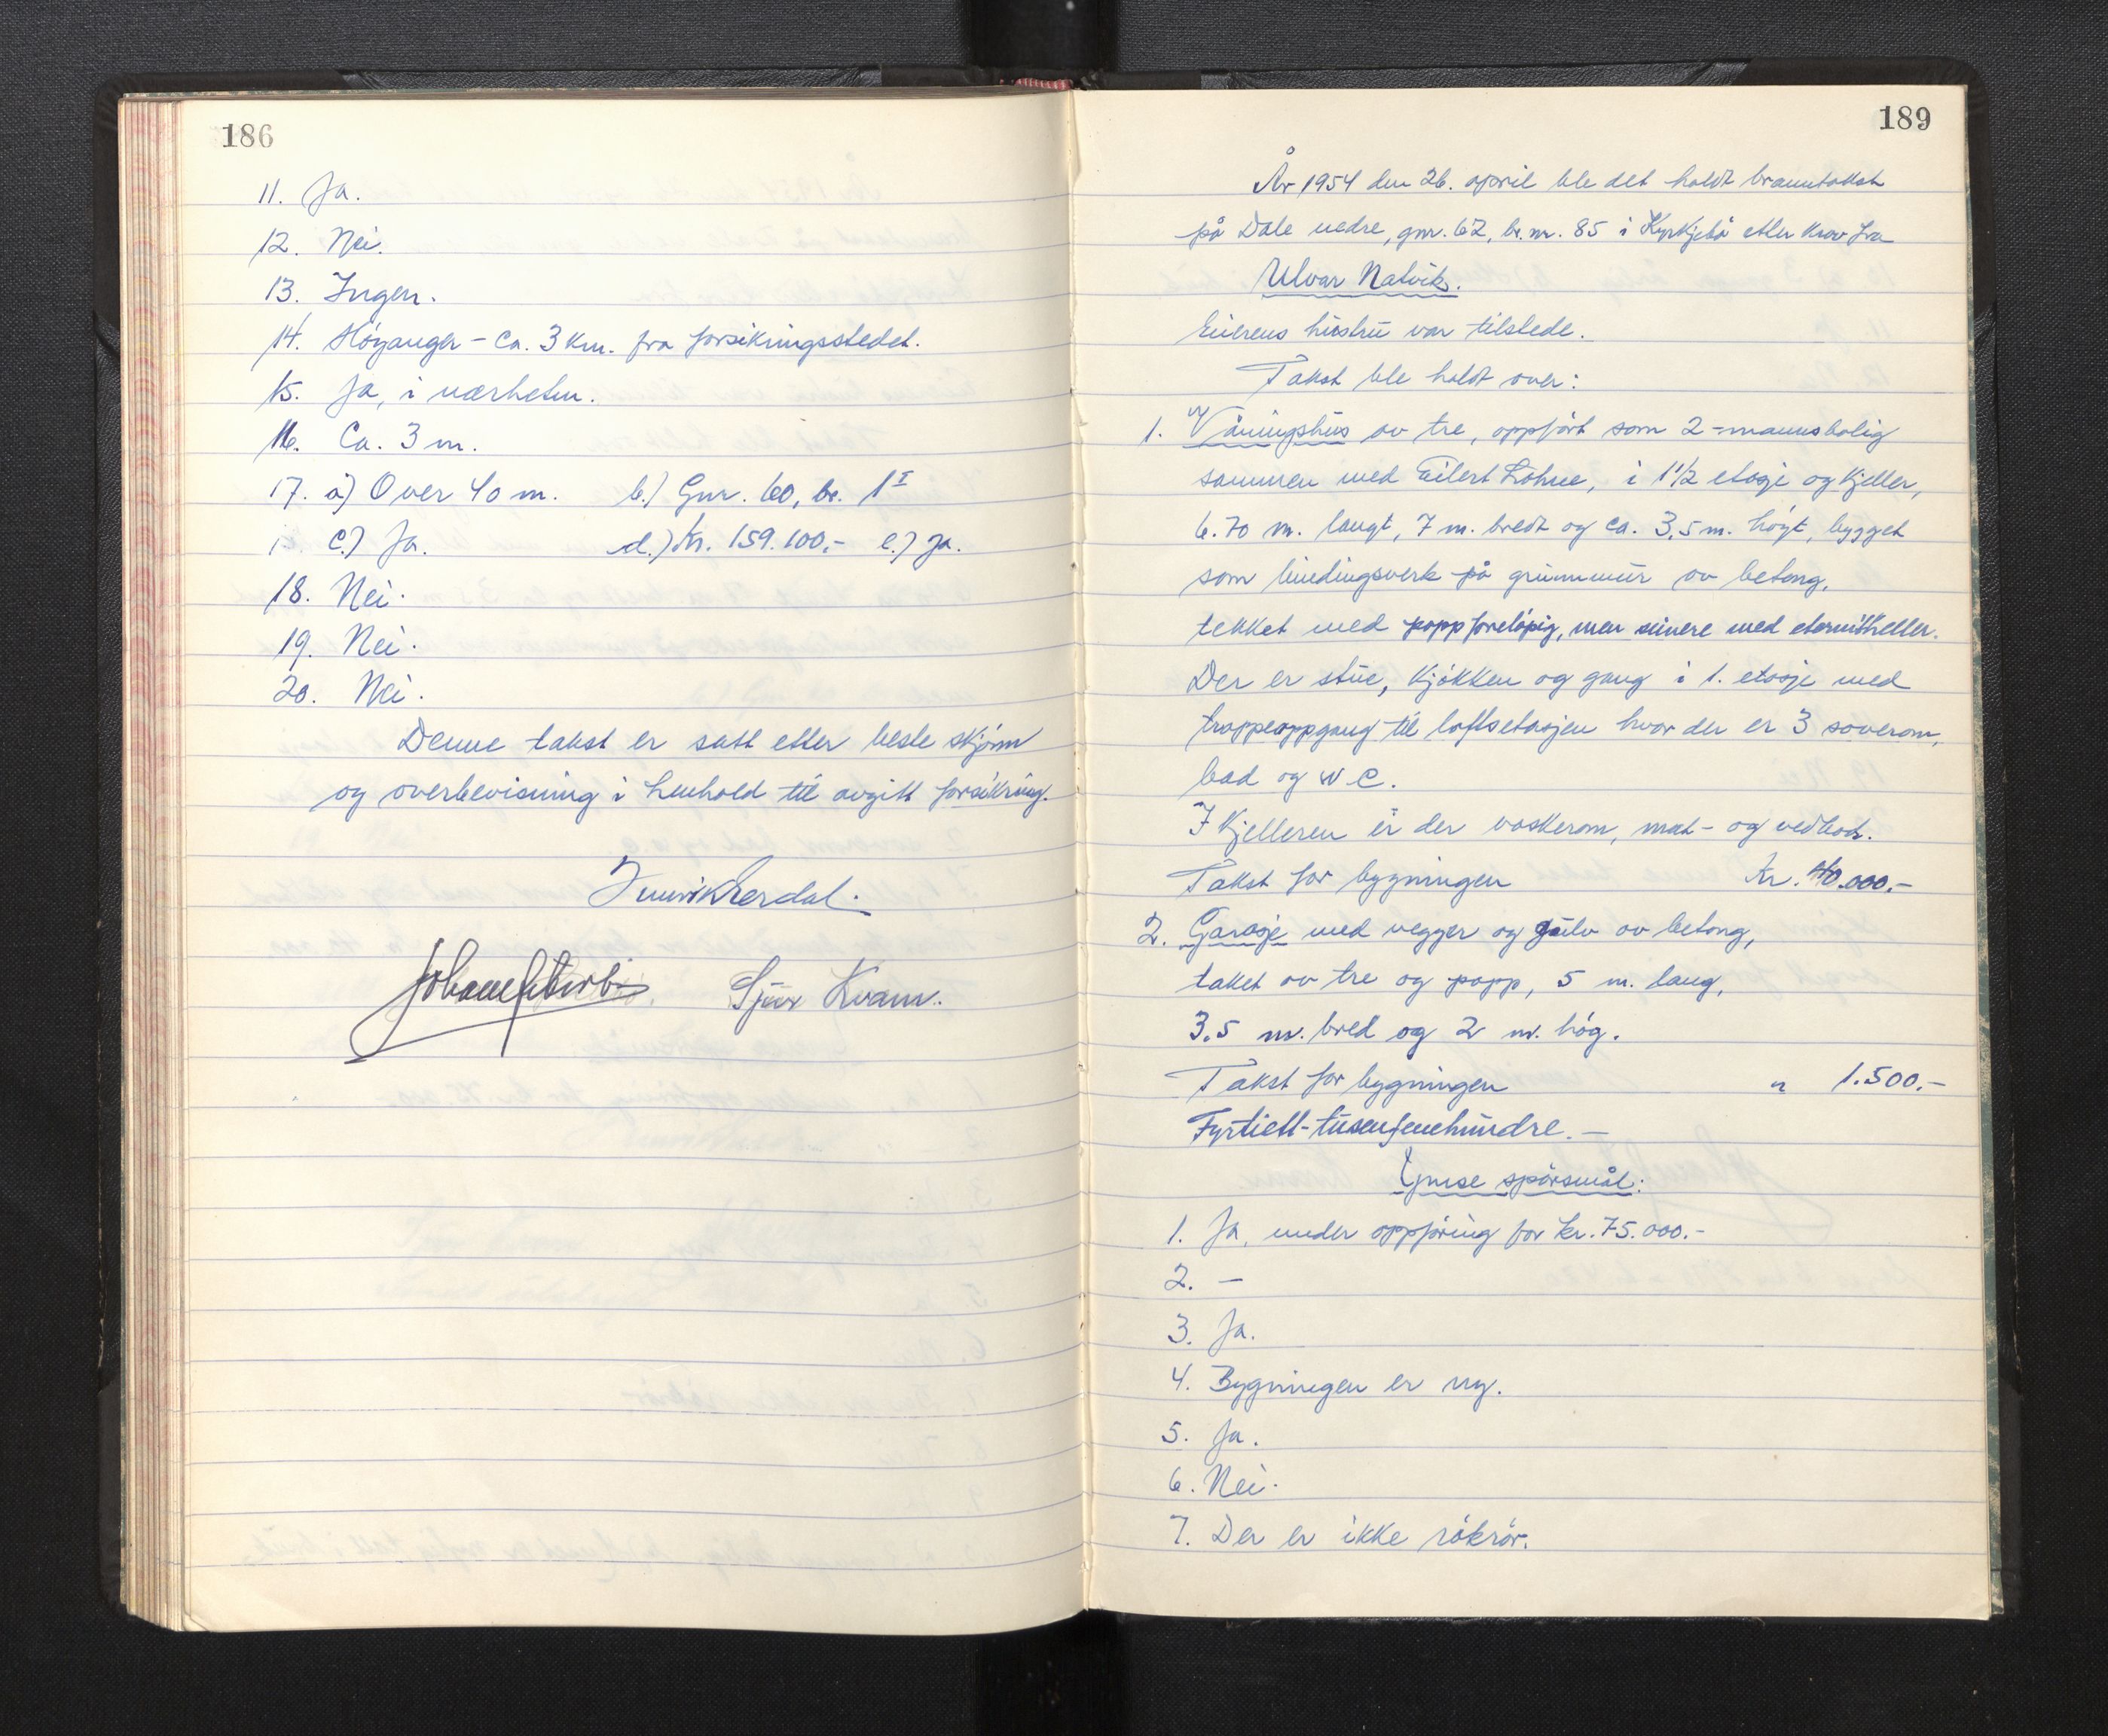 186
11. Ja.
12. Nei.
13. Ingen.
14. Höyanger - ca. 3 km. fra forsikringsstedet.
15. Ja, i nærheten.
16. Ca. 3 m.
17. a) Over 40 m. b.) Gnr. 60, br. 1 I
c.) Ja. d.) Kr. 159.100.- e.) Ja.
18. Nei.
19. Nei.
20. Nei.
Denne takst er satt etter beste skjönn
og overbevisning i henhold til avgitt forsikring.
Sjur Kvam.
189
År 1954 den 26. april ble det holdt branntakst
på Dale nedre, gnr. 62, br.nr. 85 i Kyrkjebö etter krav fra
Ulvar Natvik.
Eierens hustru var tilstede.
Takst ble holdt over:
1. Våningshus av tre, oppfört som 2-mannsbolig
sammen med Eilert Lohne, i 1 1/2 etasje og kjeller,
6.70 m. langt, 7 m. bredt og ca. 3,5 m. höyt, bygget
som bindingsverk på grunnmur av betong,
tekket med papp forelöpig, men seinere med eternittheller.
Der er stue, kjökken og gang i 1. etasje med
trappeoppgang til loftsetasjen hvor der er 3 soverom,
bad og w c.
I kjelleren er der vaskerom, mat- og vedbod.
Takst for bygningen Kr. 40.000.-
2. Garasje med vegger og gulv av betong,
taket av tre og papp, 5 m. lang,
3.5 m. bred og 2 m. hög.
Takst for bygningen " 1.500.-
Fyrtiett-tusenfemhundre.-
Ymse spörsmål:
1. Ja, under oppföring for kr. 75.000.-
2. -
3. Ja.
4. Bygningen er ny.
5. Ja.
6. Nei.
7. Der er ikke rökrör.